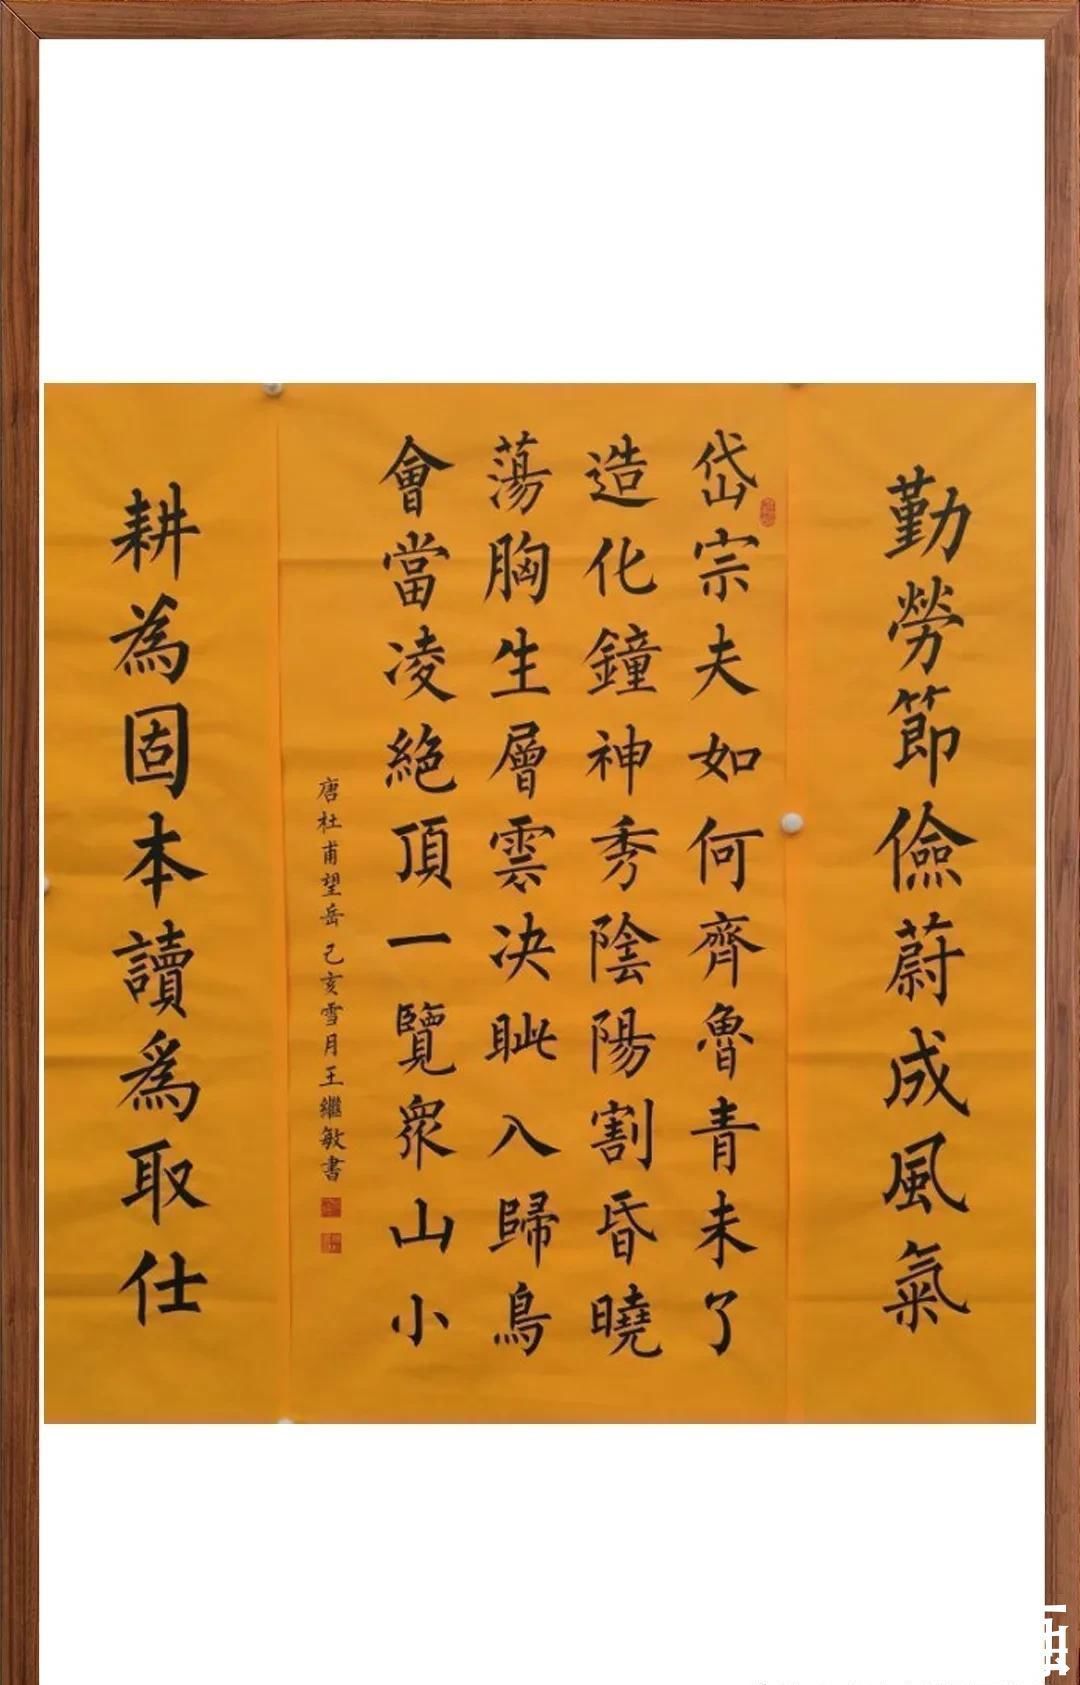 勤勞節儉蔚成風氣
岱宗夫如何齊魯青未了
造化鐘神秀陰陽割昏曉
蕩胸生層雲决眦入歸鳥
會當凌絕頂一覽眾山小
唐杜甫望岳己亥雪月王繼敏書
耕為固本讀爲取仕